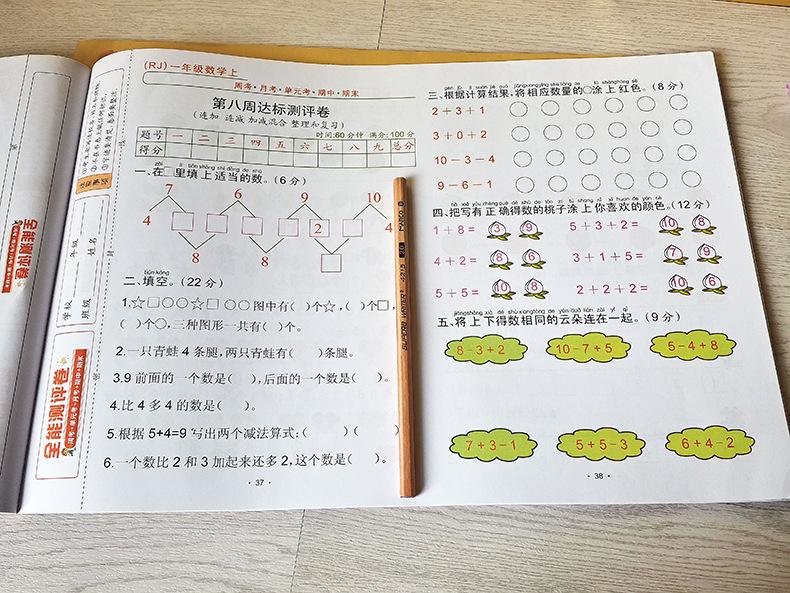 (RJ)一年级数学上
周考·月考·单元考·期中·期末
第八周达标测评卷
(连加 连减 加减混合 整理和复习)
时间:60分钟 满分:100分
题号 一 二 三 四 五 六 七 八 九 总分
得分
一、在□里填上适当的数。(6分)
7 6 9 10
4 2 4
8 8
二、填空。(22分)
1.☆□○○☆□ ○○图中有( )个☆,( )个□,
( )个○,三种图形一共有( )个。
2.一只青蛙4条腿,两只青蛙有( )条腿。
3.9前面的一个数是( ),后面的一个数是( )。
4.比4多4的数是( )。
5.根据5+4=9写出两个减法算式:( )( )
6.一个数比2和3加起来还多2,这个数是( )。
·37·
学校
班级
姓名
年级
全能测评卷
周考·月考·单元考·期中·期末
三、根据计算结果,将相应数量的○涂上红色。(8分)
2+3+1
3+0+2
10-3-4
9-6-1
四、把写有正确得数的桃子涂上你喜欢的颜色。(12分)
1+8= 3 9 5+3+2= 10 8
4+2= 8 6 3+1+5= 7 9
5+5= 10 6 2+2+2= 10 8
五、将上下得数相同的云朵连在一起。(9分)
8-3+2 10-7+5 5-4+8
7+3-1 5+5-3 6+4-2
·38·